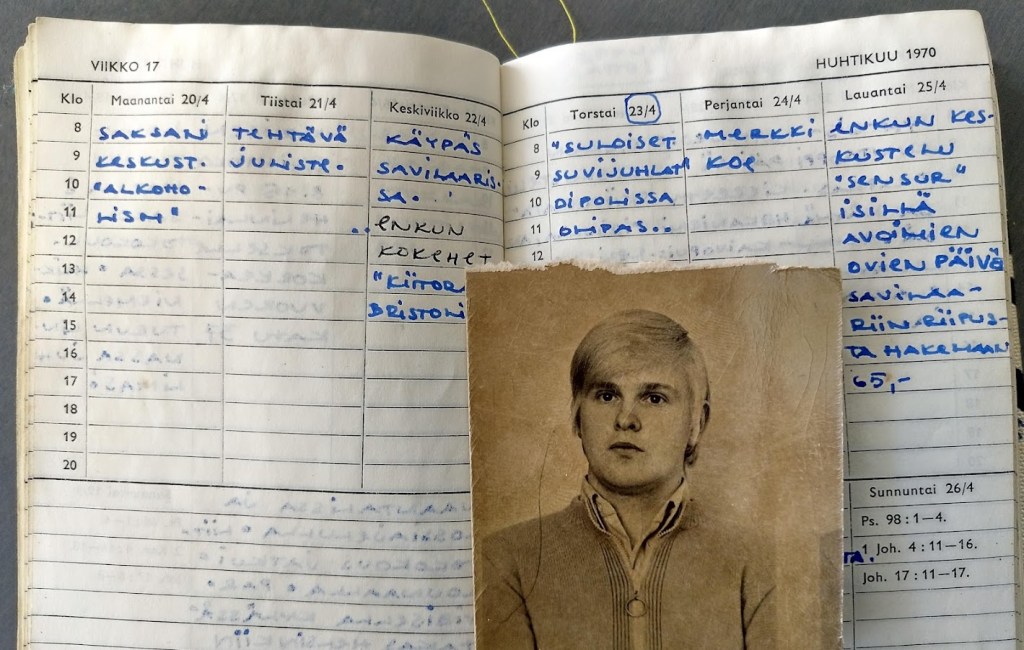 VIIKKO 17
Klo
8
9
10
11
12
13
14
15
16
17
18
19
20
Maanantai 20/4
SAKSANI
KESKUST.
"ALKOHO-
LISM"
Tiistai 21/4
TEHTÄVÄ
JULISTE.
Keskiviikko 22/4
KÄYPÄS
SAVILAARIS-
SA.
..ENKUN
KOKEHET
"KIITORA
BRISTOLI
HUHTIKUU 1970
Klo
8
9
10
11
12
Torstai 23/4
"SULOISET
SUVIJUHLAT"
DIPOLISSA
OLIPAS..
Perjantai 24/4
MERKKI
KOE
Lauantai 25/4
ENKUN KES-
KUSTELU
"SENSUR"
ISILLÄ
AVOIMIEN
OVIEN PÄIVÄ
SAVILAA-
RIIN RIIPUS-
TA HAKEMAAN
65,-
Sunnuntai 26/4
Ps. 98 : 1—4.
1 Joh. 4 : 11—16.
Joh. 17 : 11—17.
TA.